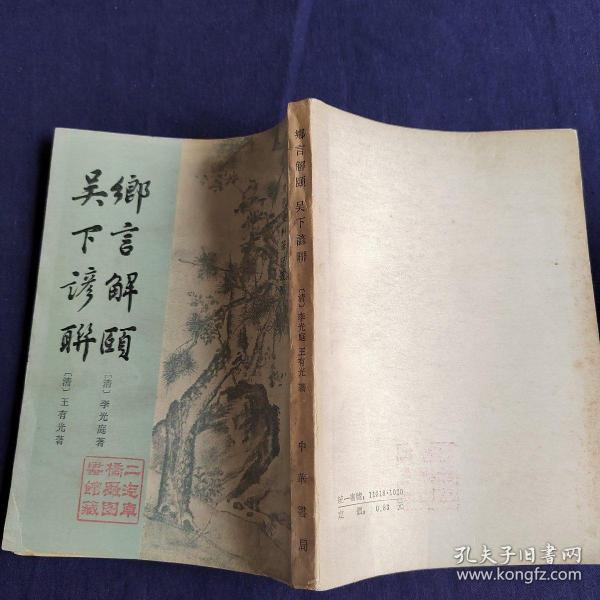 鄉言解頤
〔清〕李光庭著
吴下諺聯
〔清〕王有光著
二汽車
橋廠图
書館藏
鄉言解頤 吴下諺聯 〔清〕李光庭 王有光著 中華書局
统一書號：11018·1020
定價：0.83元
孔夫子旧書网
www.kongfz.com